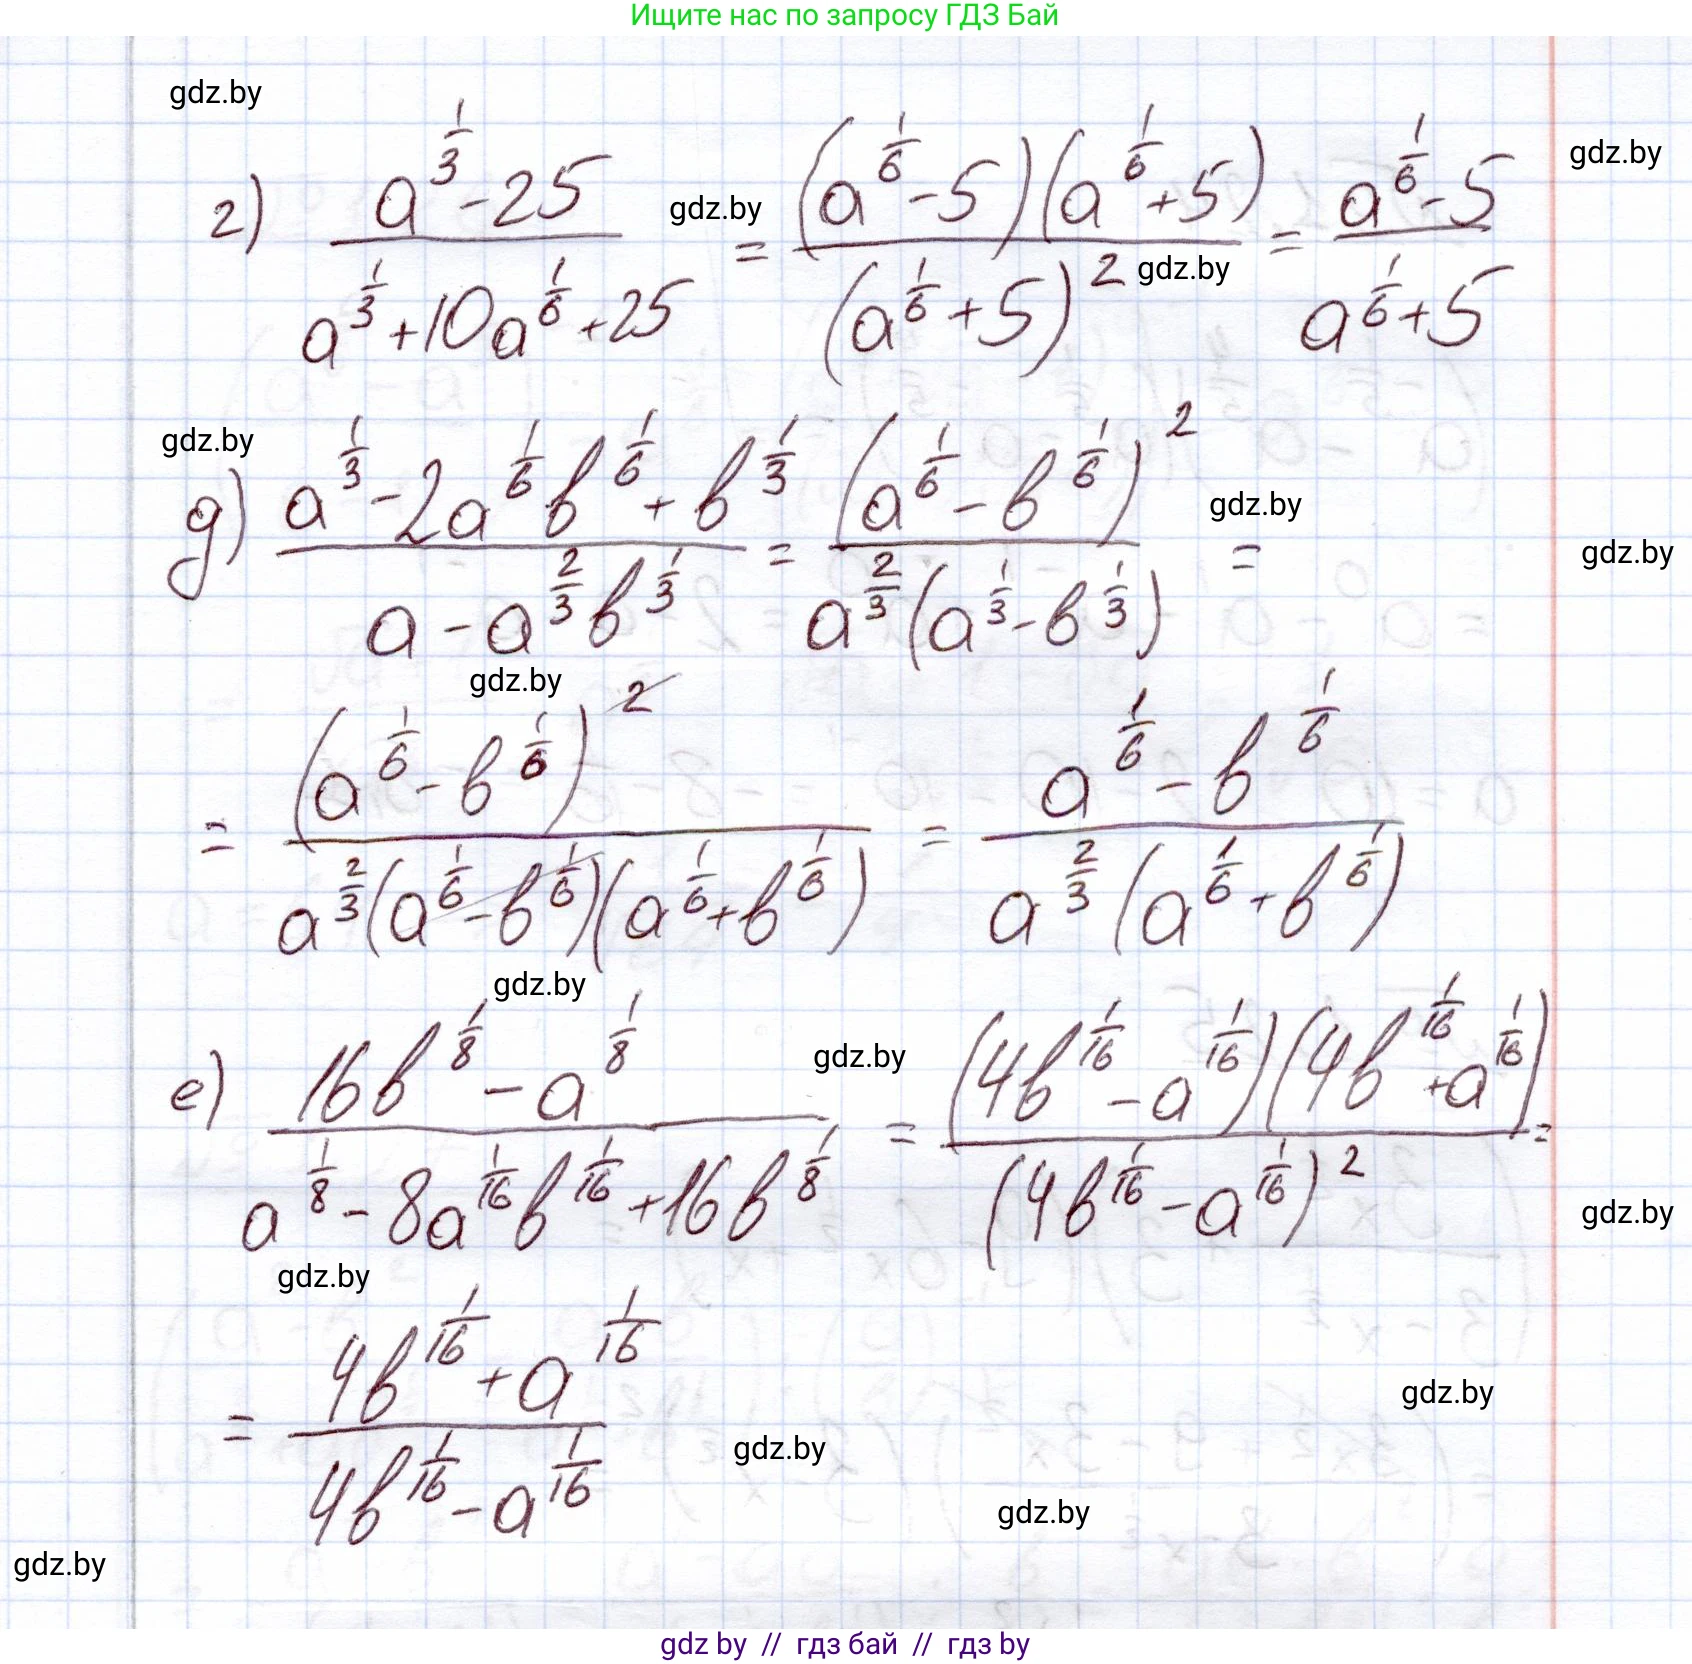 Ищите нас по запросу ГДЗ Бай
gdz.by
г) (a^(1/3) - 25)/(a^(1/3) + 10a^(1/6) + 25) = ((a^(1/6) - 5)(a^(1/6) + 5))/(a^(1/6) + 5)^2 = (a^(1/6) - 5)/(a^(1/6) + 5)
gdz.by
gdz.by
gdz.by
gdz.by
д) (a^(1/3) - 2a^(1/6)в^(1/6) + в^(1/3))/(a - a^(2/3)в^(1/3)) = (a^(1/6) - в^(1/6))^2/(a^(2/3)(a^(1/3) - в^(1/3))) =
gdz.by
gdz.by
gdz.by
= (a^(1/6) - в^(1/6))^2/(a^(2/3)(a^(1/6) - в^(1/6))(a^(1/6) + в^(1/6))) = (a^(1/6) - в^(1/6))/(a^(2/3)(a^(1/6) + в^(1/6)))
gdz.by
е) (16в^(1/8) - a^(1/8))/(a^(1/8) - 8a^(1/16)в^(1/16) + 16в^(1/8)) = ((4в^(1/16) - a^(1/16))(4в^(1/16) + a^(1/16)))/(4в^(1/16) - a^(1/16))^2 =
gdz.by
gdz.by
gdz.by
= (4в^(1/16) + a^(1/16))/(4в^(1/16) - a^(1/16))
gdz.by
gdz.by
gdz.by
gdz.by
gdz by // гдз бай // гдз by